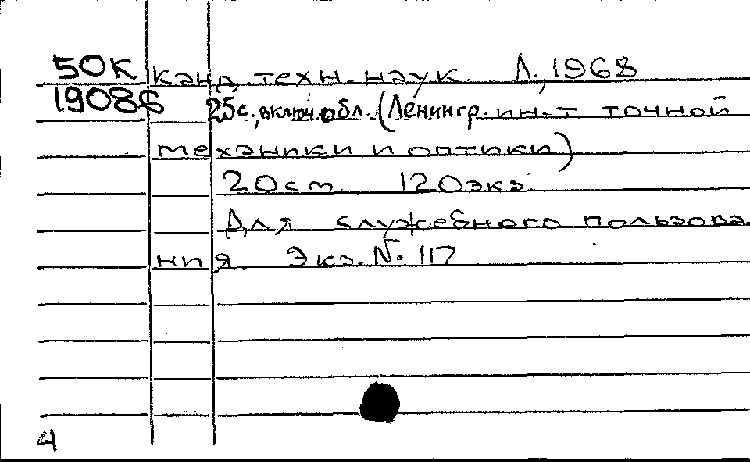 50К канд. техн. наук Л., 1968
19086 25с., включ. обл. (Ленингр. ин-т точной
механики и оптики)
20см. 120экз.
Для служебного пользова
ния. Экз. № 117
4